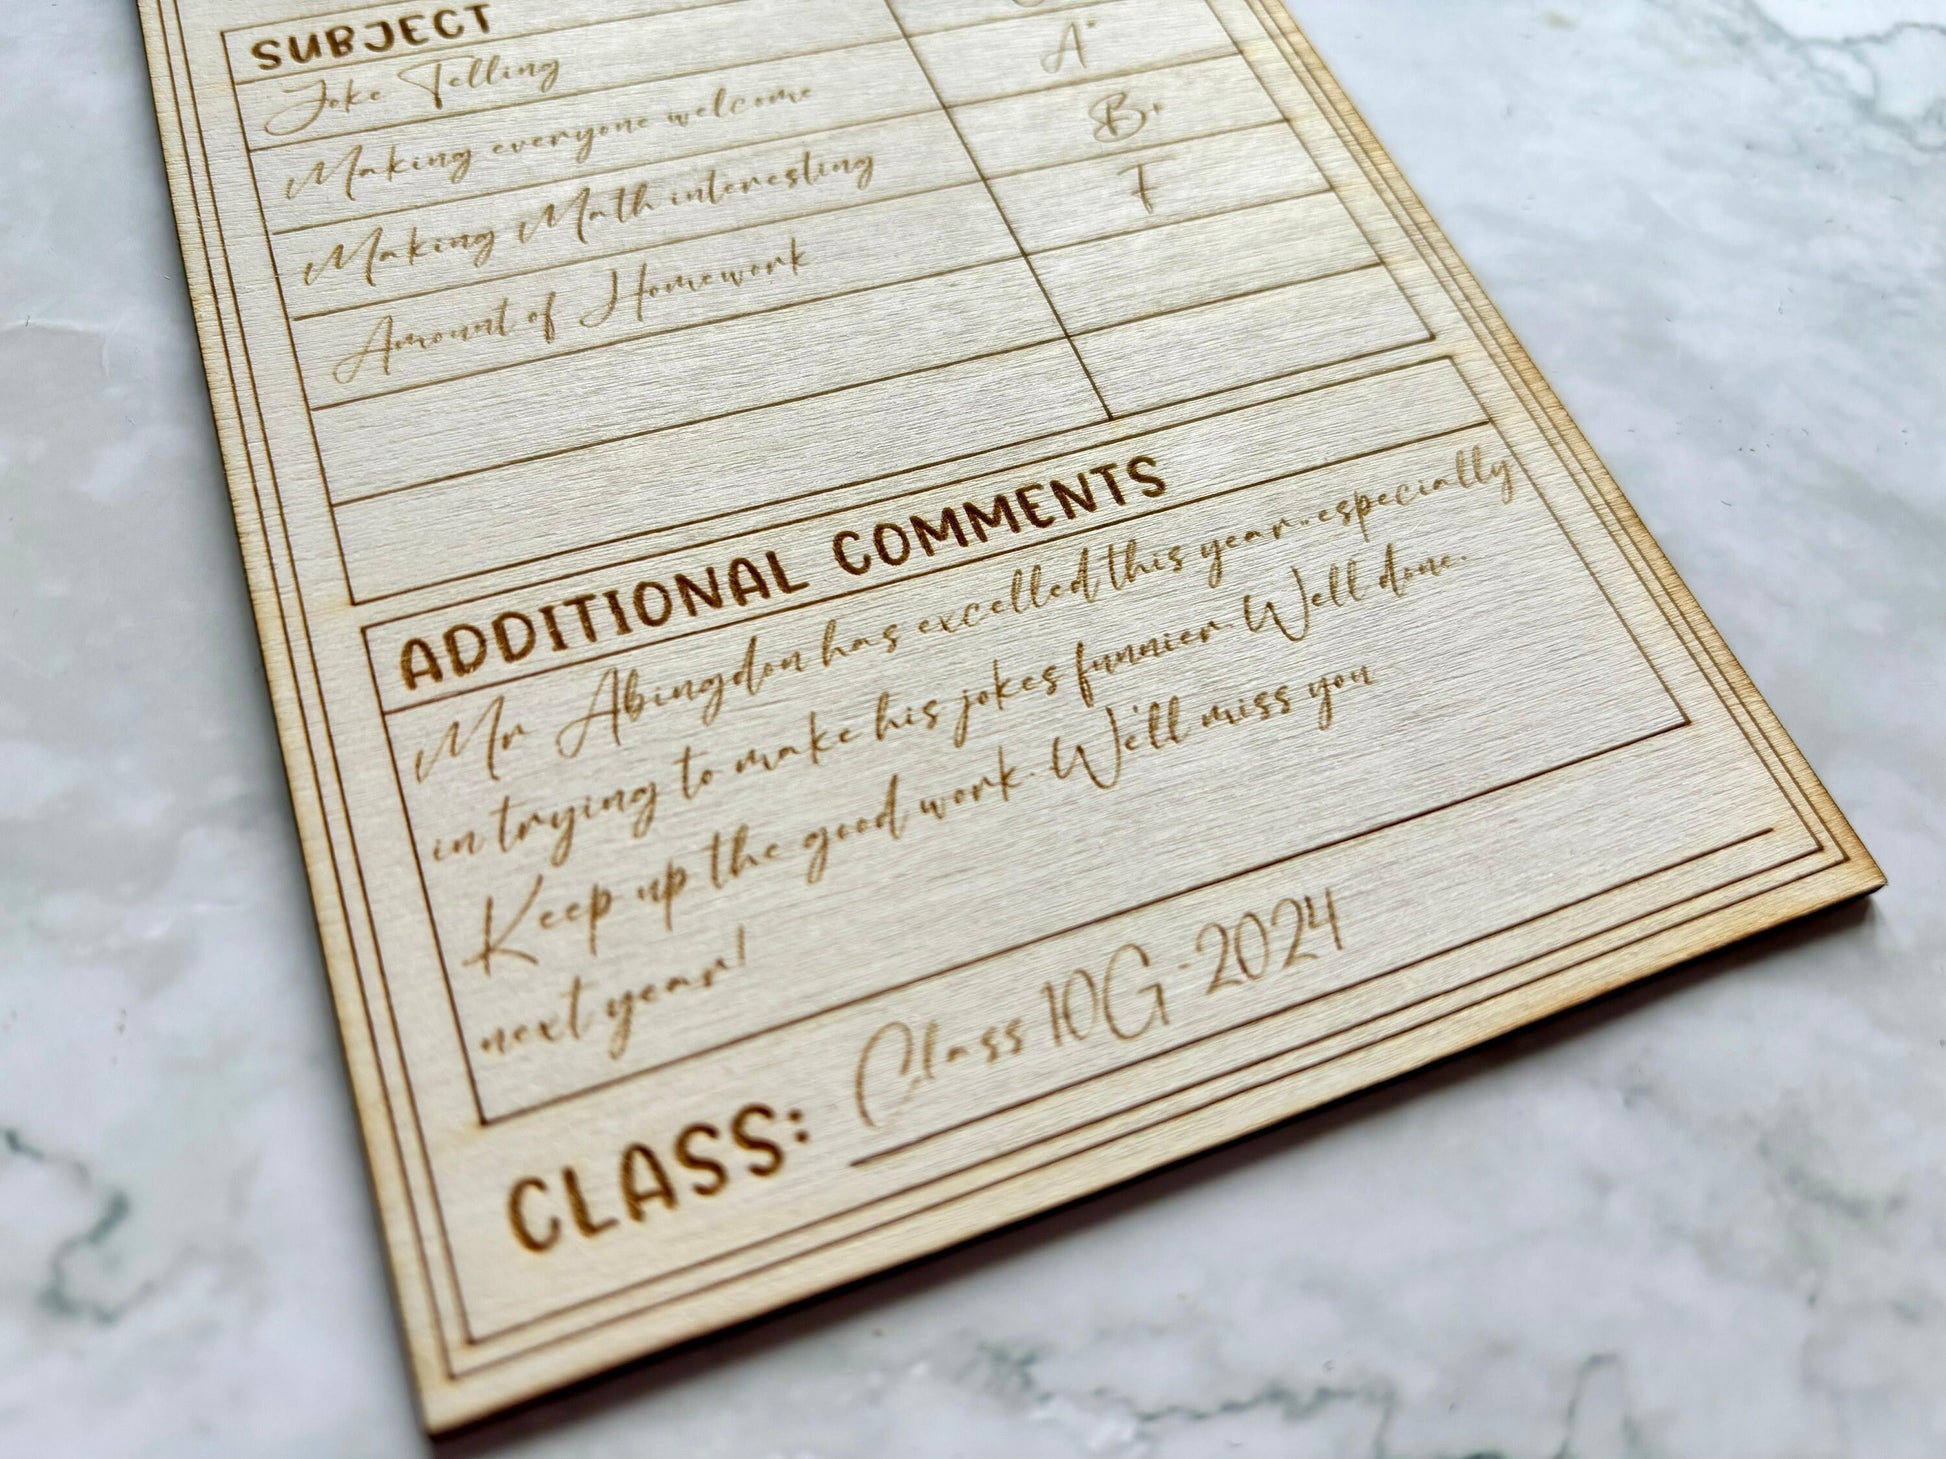 SUBJECT
Joke Telling
Making everyone welcome A+
Making Math interesting B+
Amount of Homework F
ADDITIONAL COMMENTS
Mr Abingdon has excelled this year..especially
in trying to make his jokes funnier. Well done.
Keep up the good work. We'll miss you
next year!
CLASS: Class 10G - 2024